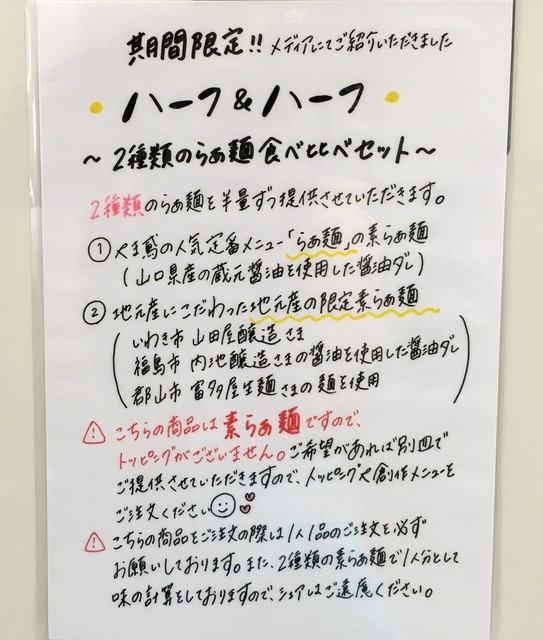 期間限定!! メディアにてご紹介いただきました
ハーフ&ハーフ
～2種類のらぁ麺食べとべセット～
2種類のらぁ麺を半量ずつ提供させていただきます。
① やま鳶の人気定番メニュー「らぁ麺」の素らぁ麺
(山口県産の蔵元醤油を使用した醤油ダレ)
② 地元産にこだわった地元産の限定素らぁ麺
いわき市 山田屋醸造さま
福島市 内池醸造さまの醤油を使用した醤油ダレ
郡山市 冨多屋生麺さまの麺を使用
⚠ こちらの商品は素らぁ麺ですので、
トッピングがございません。ご希望があれば別皿で
ご提供させていただきますので、トッピングや創作メニューを
ご注文ください
⚠ こちらの商品をご注文の際は1人1品のご注文を必ず
お願いしております。また、2種類の素らぁ麺で1人分として
味の計算をしておりますので、シェアはご遠慮ください。